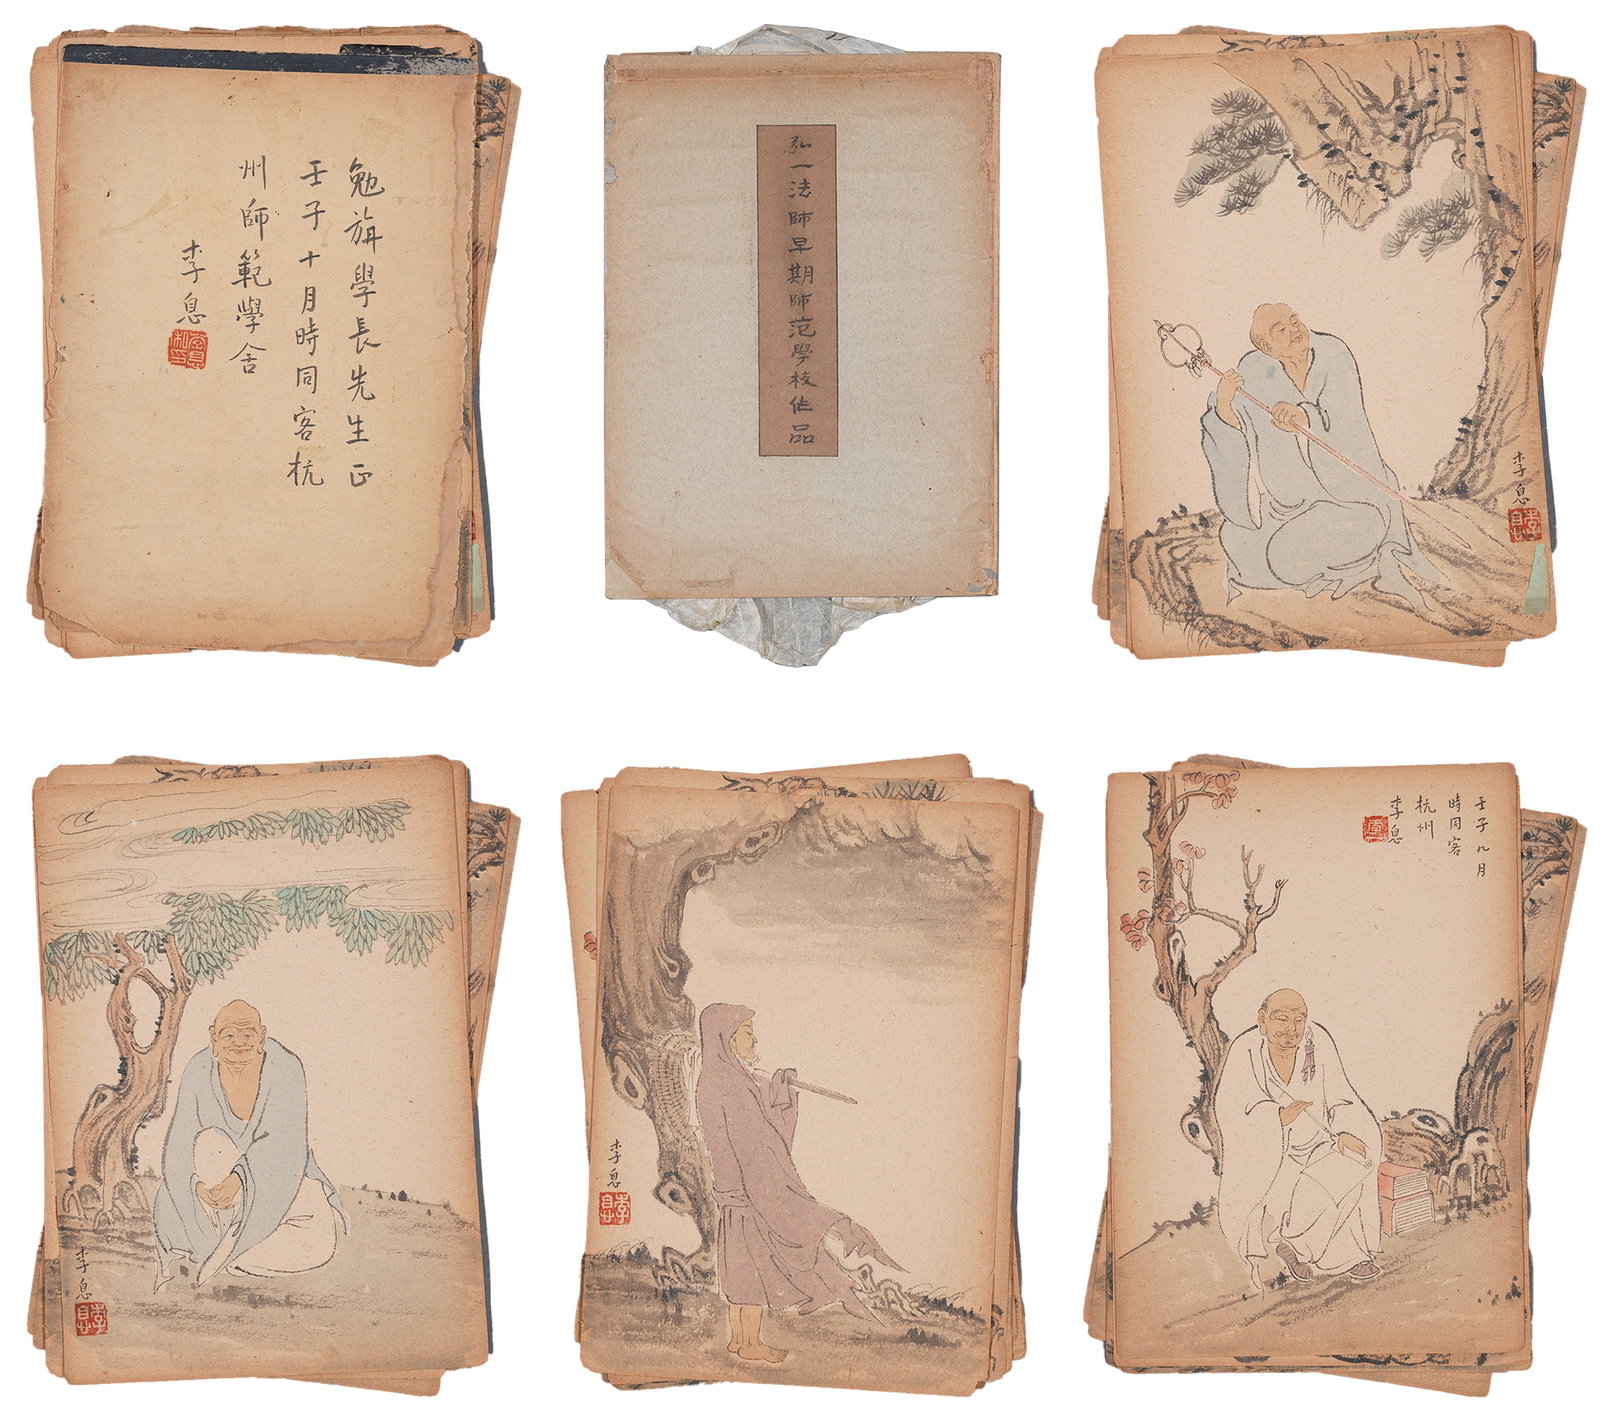 勉旃學長先生正
壬子十月時同客杭
州師範學舍
李息
弘一法師早期師范學校作品
李息
李息
李息
壬子九月
時同客
杭州
李息